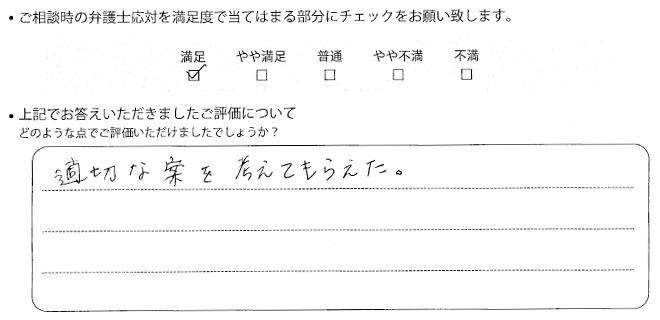 • ご相談時の弁護士応対を満足度で当てはまる部分にチェックをお願い致します。
満足 やや満足 普通 やや不満 不満
☑ ☐ ☐ ☐ ☐
• 上記でお答えいただきましたご評価について
どのような点でご評価いただけましたでしょうか？
適切な案を考えてもらえた。